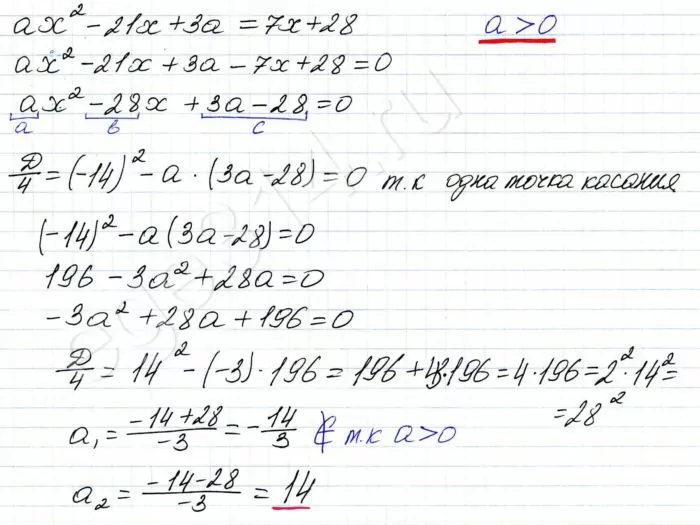 ax² - 21x + 3a = 7x + 28 a > 0
ax² - 21x + 3a - 7x + 28 = 0
ax² - 28x + 3a - 28 = 0
a в c
Д/4 = (-14)² - a · (3a - 28) = 0 т.к одна точка касания
(-14)² - a (3a - 28) = 0
196 - 3a² + 28a = 0
-3a² + 28a + 196 = 0
Д/4 = 14² - (-3) · 196 = 196 + 3·196 = 4 · 196 = 2² · 14² =
= 28²
a₁ = (-14 + 28)/(-3) = -14/3 ∉ т.к a > 0
a₂ = (-14 - 28)/(-3) = 14